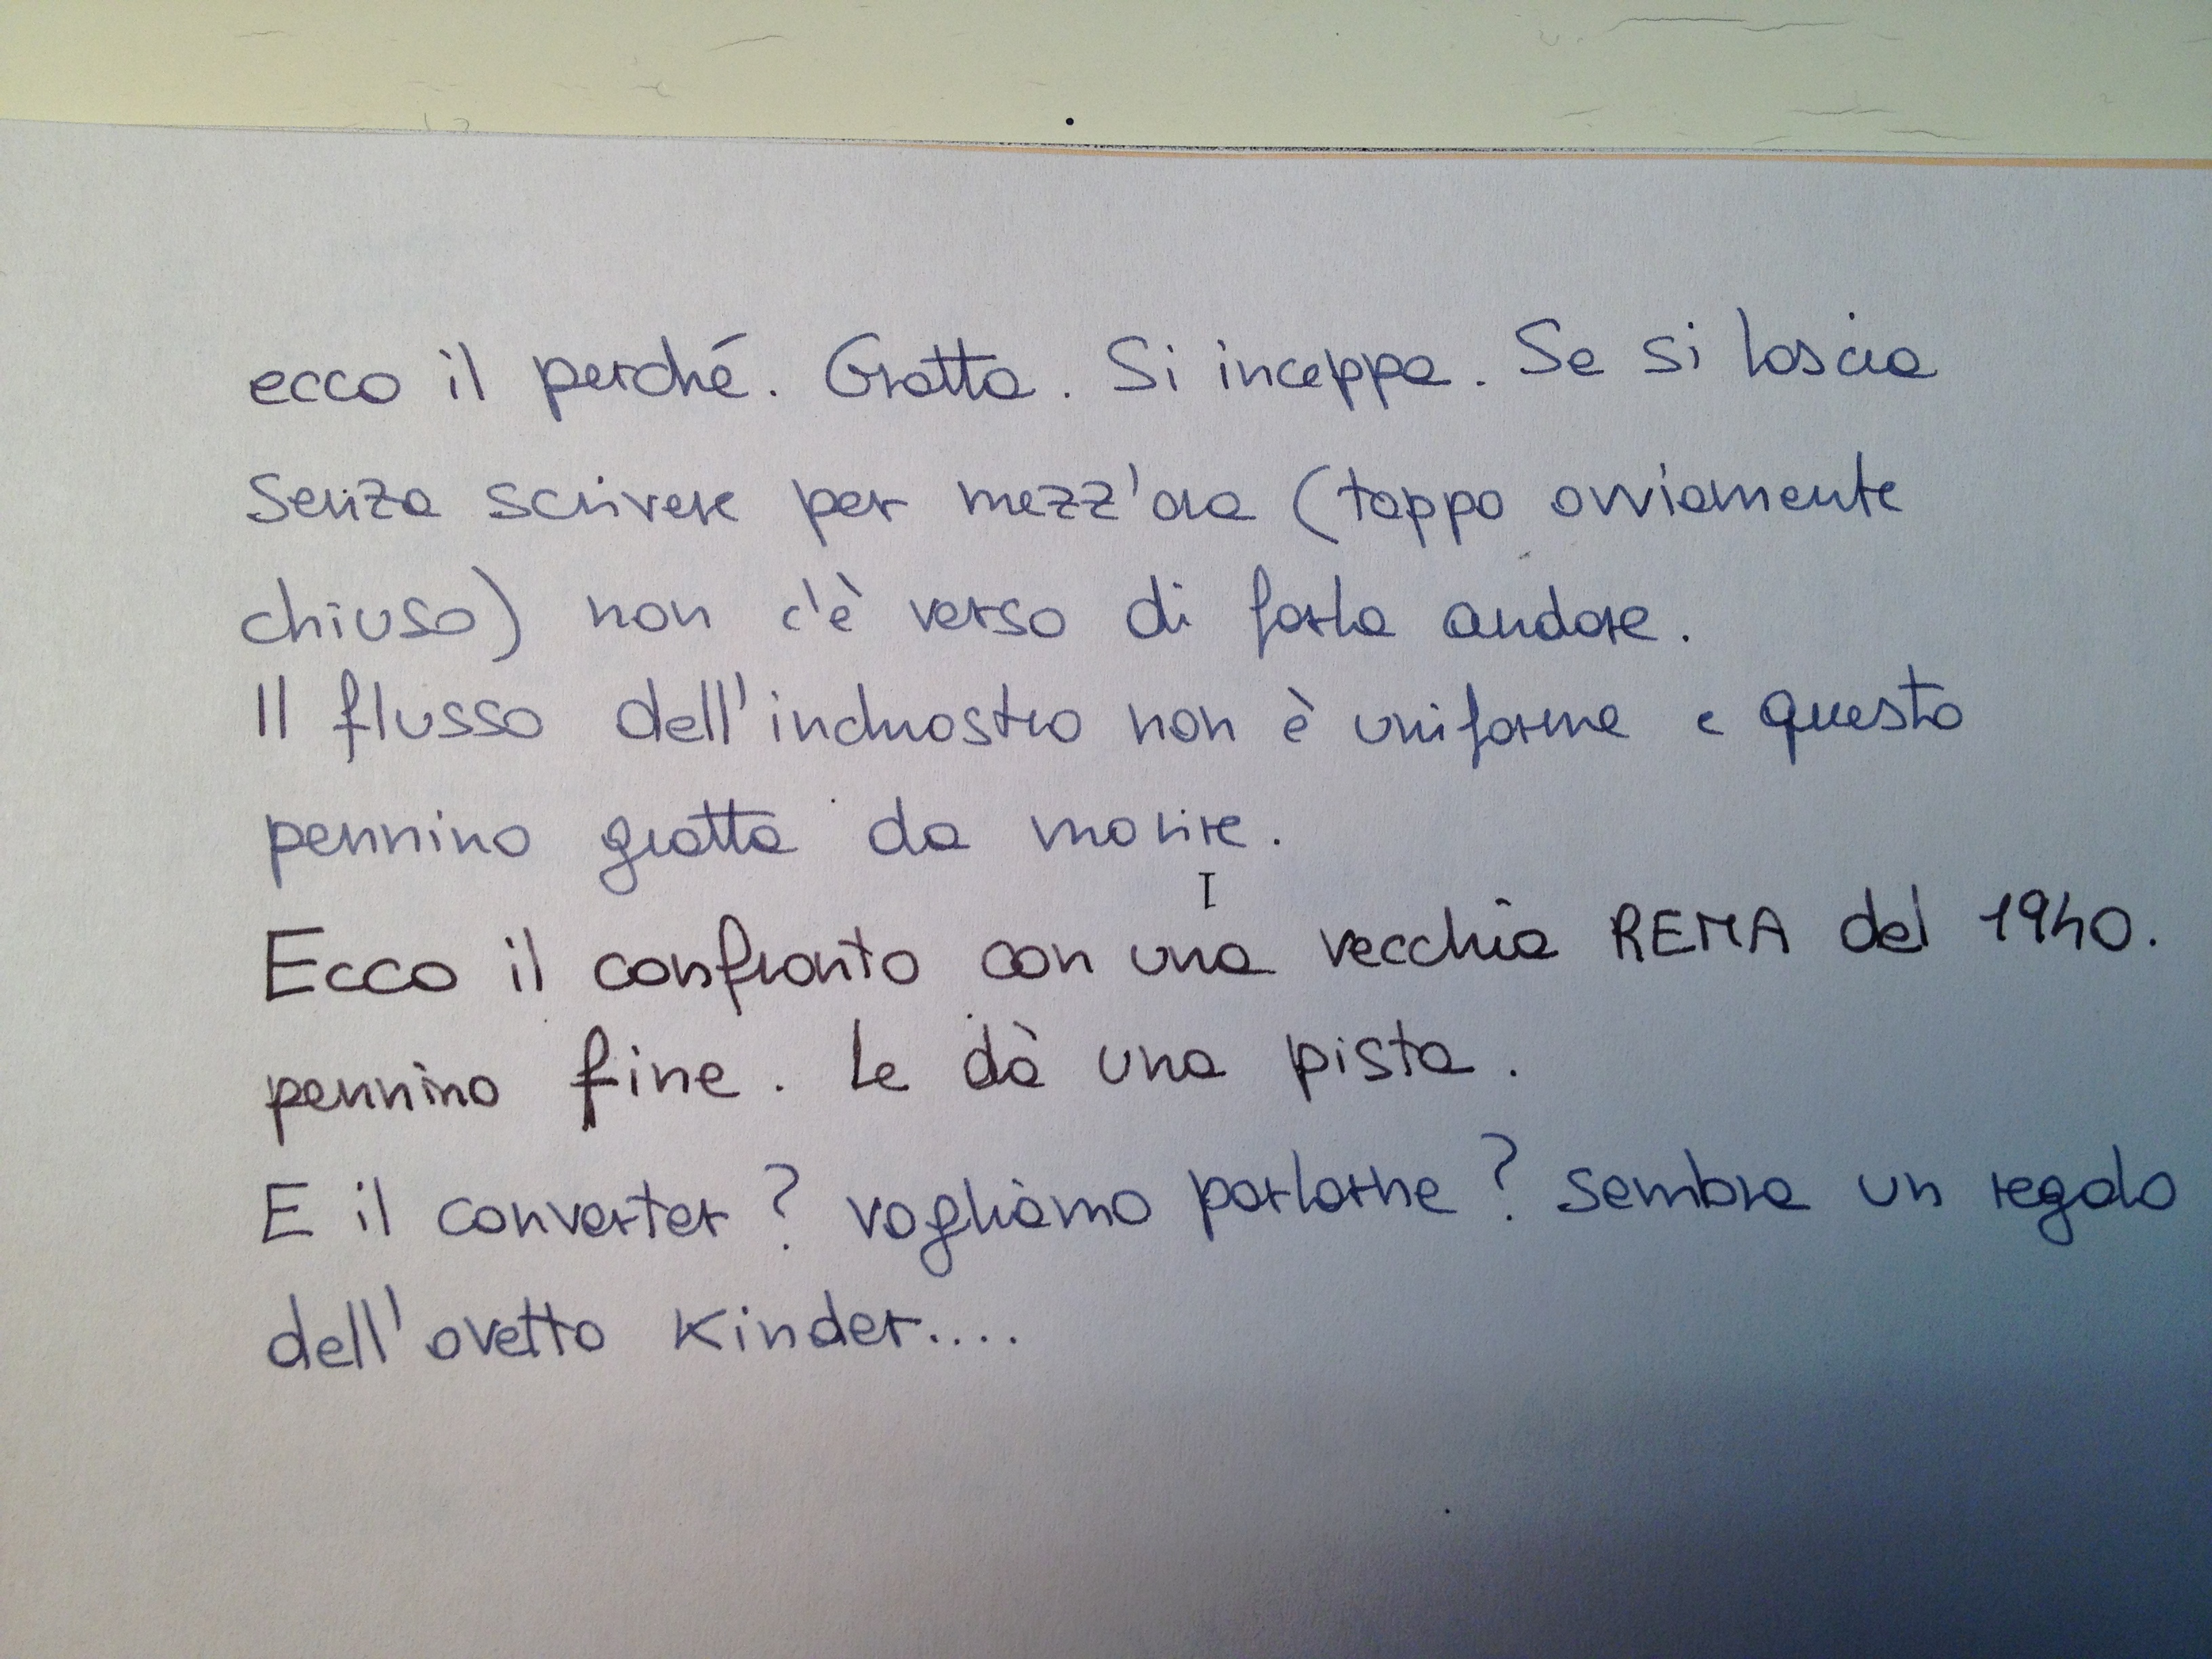 ecco il perché. Gratta. Si inceppa. Se si lascia
senza scrivere per mezz'ora (tappo ovviamente
chiuso) non c'è verso di farla andare.
Il flusso dell'inchiostro non è uniforme e questo
pennino gratta da morire.
Ecco il confronto con una vecchia REMA del 1940.
pennino fine. Le dà una pista.
E il converter? vogliamo parlarne? sembra un regalo
dell'ovetto Kinder....